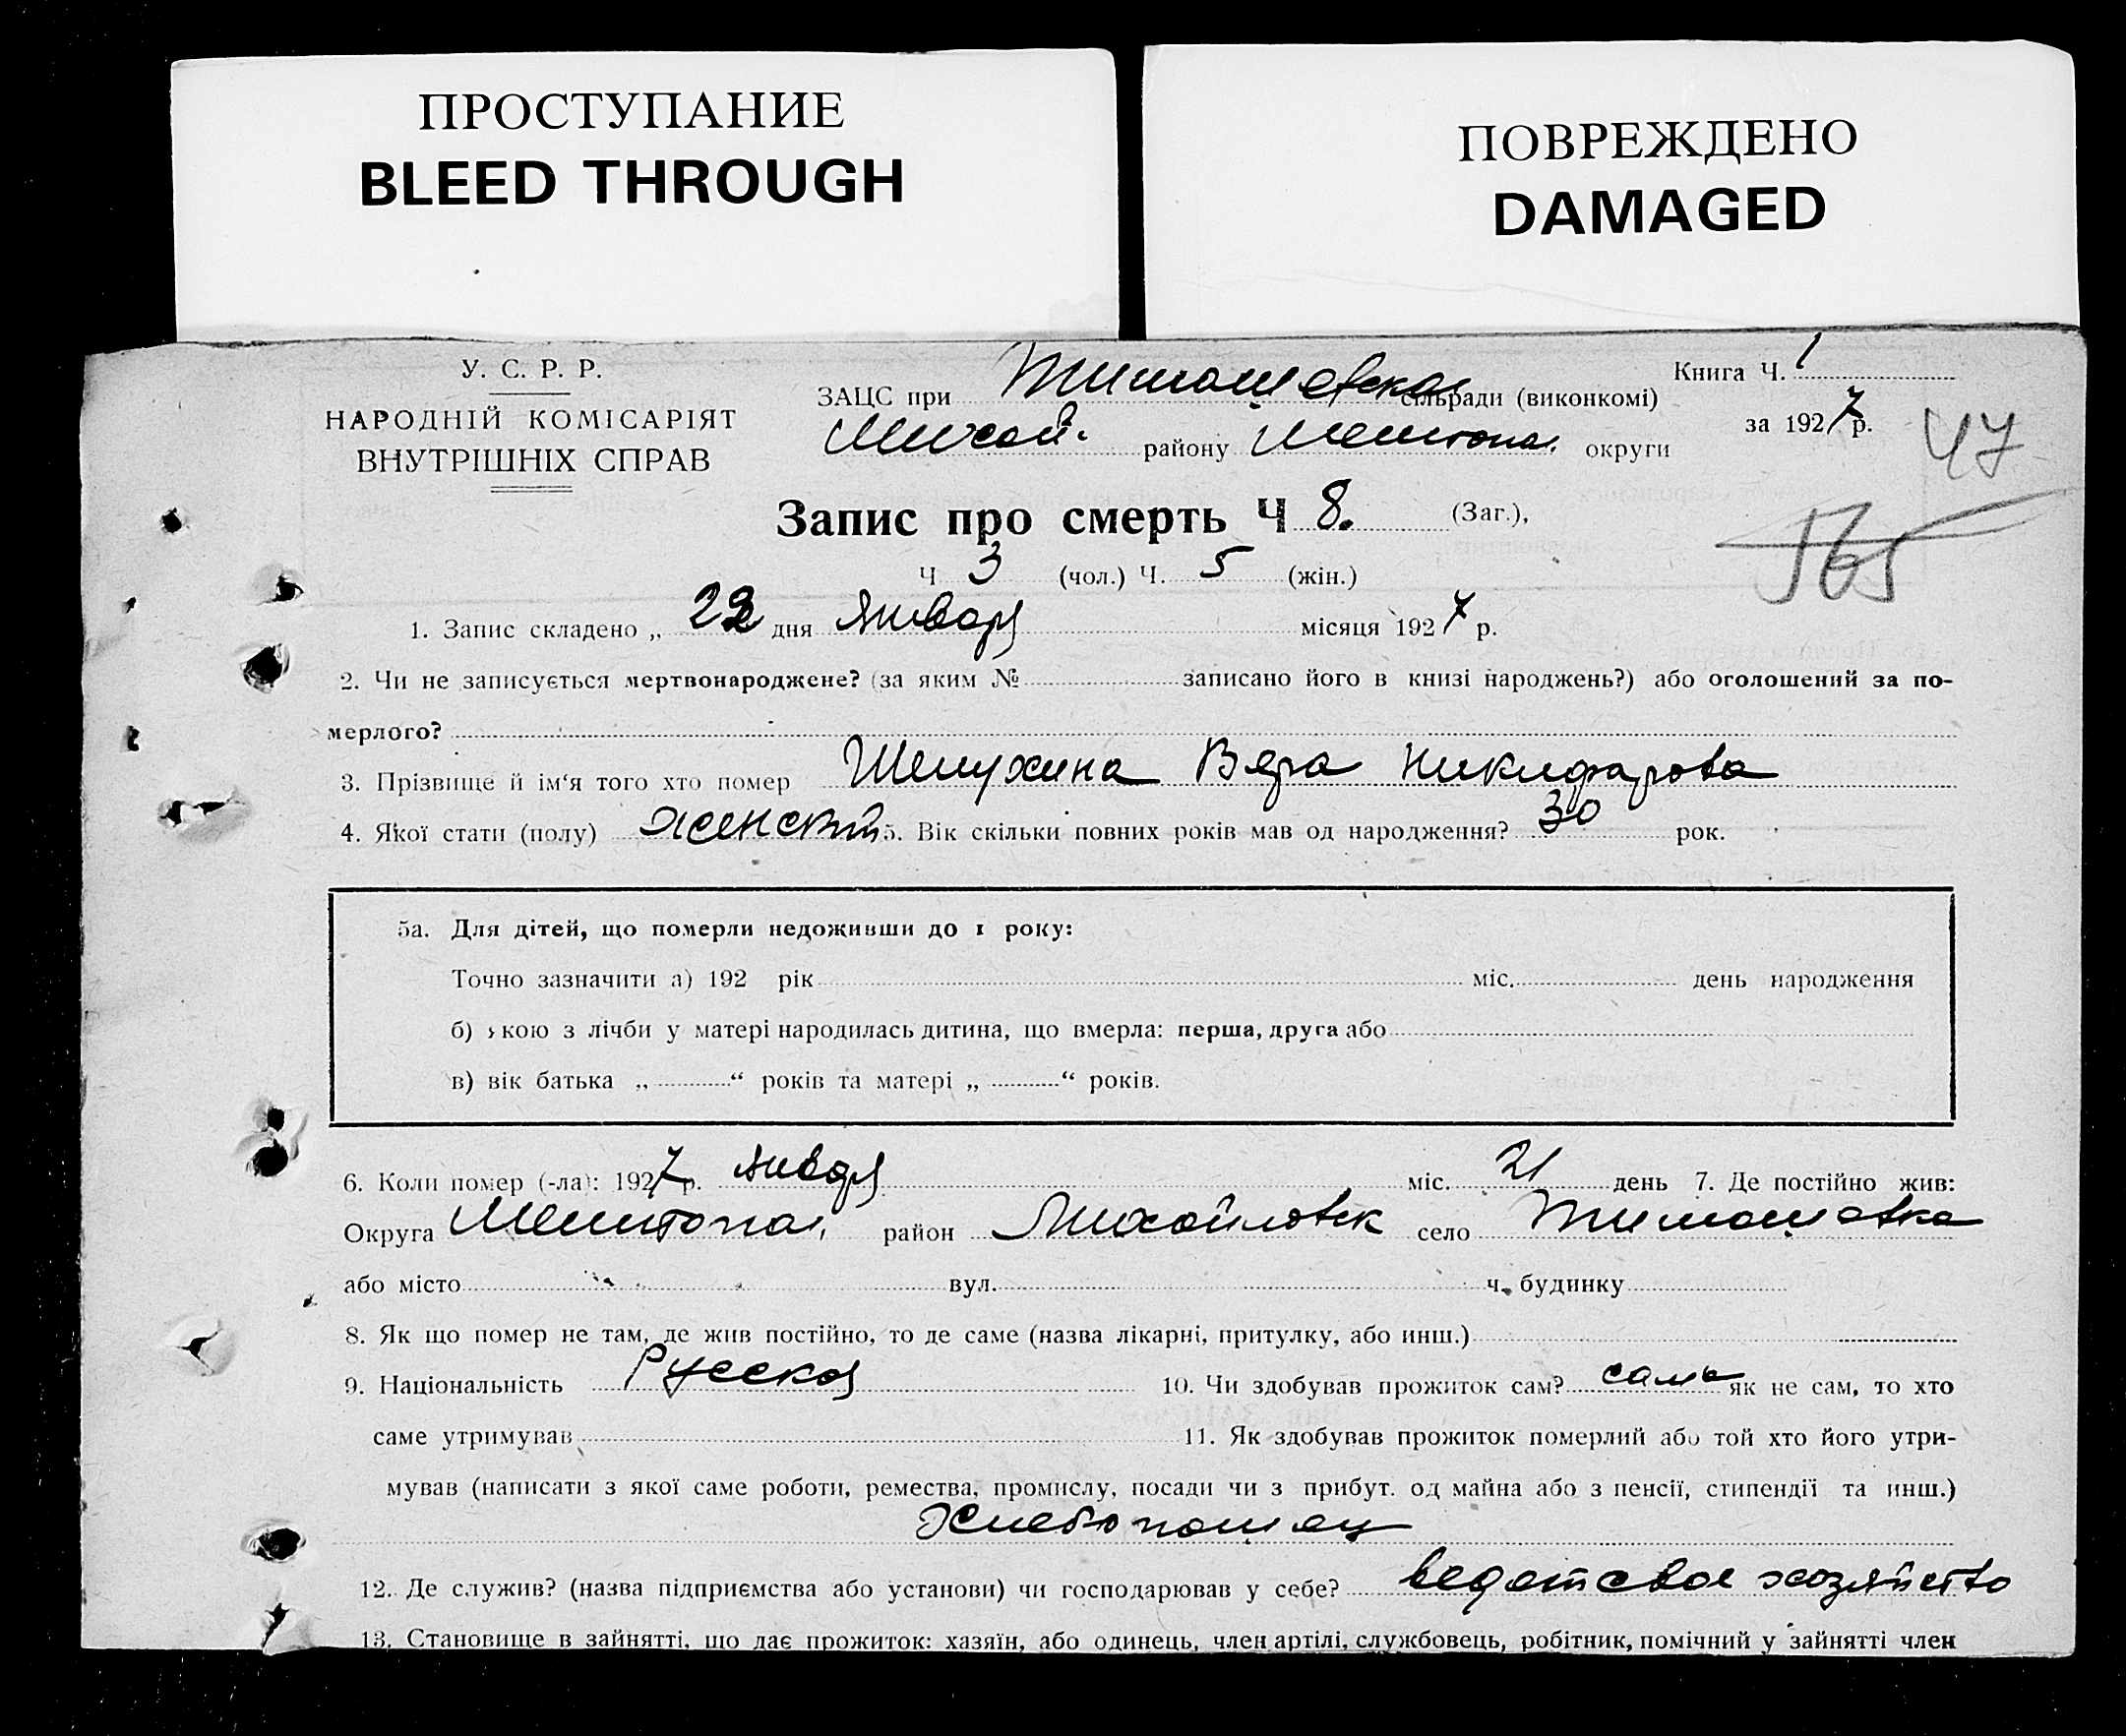 ПРОСТУПАНИЕ
BLEED THROUGH
ПОВРЕЖДЕНО
DAMAGED
У. С. Р. Р.
НАРОДНІЙ КОМІСАРІЯТ
ВНУТРІШНІХ СПРАВ
Книга Ч. 1
за 1927 р.
47
565
ЗАЦС при Тимошевской сільради (виконкомі)
Михай. району Мелитопол. округи
Запис про смерть Ч 8. (Заг.),
Ч 3 (чол.) Ч. 5 (жін.)
1. Запис складено „ 22 дня Января місяця 1927 р.
2. Чи не записується мертвонароджене? (за яким № записано його в книзі народжень?) або оголошений за по-
мерлого?
3. Прізвище й ім'я того хто помер Шелухина Вера Никифарова
4. Якої стати (полу) женский 5. Вік скільки повних років мав од народження? 30 рок.
5а. Для дітей, що померли недоживши до 1 року:
Точно зазначити а) 192 рік міс. день народження
б) якою з лічби у матері народилась дитина, що вмерла: перша, друга або
в) вік батька „ “ років та матері „ “ років.
6. Коли помер (-ла): 1927 р. Января міс. 21 день 7. Де постійно жив:
Округа Мелитопол. район Михайловск село Тимошовка
або місто вул. ч. будинку
8. Як що помер не там, де жив постійно, то де саме (назва лікарні, притулку, або инш.)
9. Національність Русская 10. Чи здобував прожиток сам? сама як не сам, то хто
саме утримував 11. Як здобував прожиток померлий або той хто його утри-
мував (написати з якої саме роботи, ремества, промислу, посади чи з прибут. од майна або з пенсії, стипендії та инш.)
Хлебопашец
12. Де служив? (назва підприємства або установи) чи господарював у себе? ведет свое хозяйство
13. Становище в зайнятті, що дає прожиток: хазяїн, або одинець, член артілі, службовець, робітник, помічний у зайнятті член